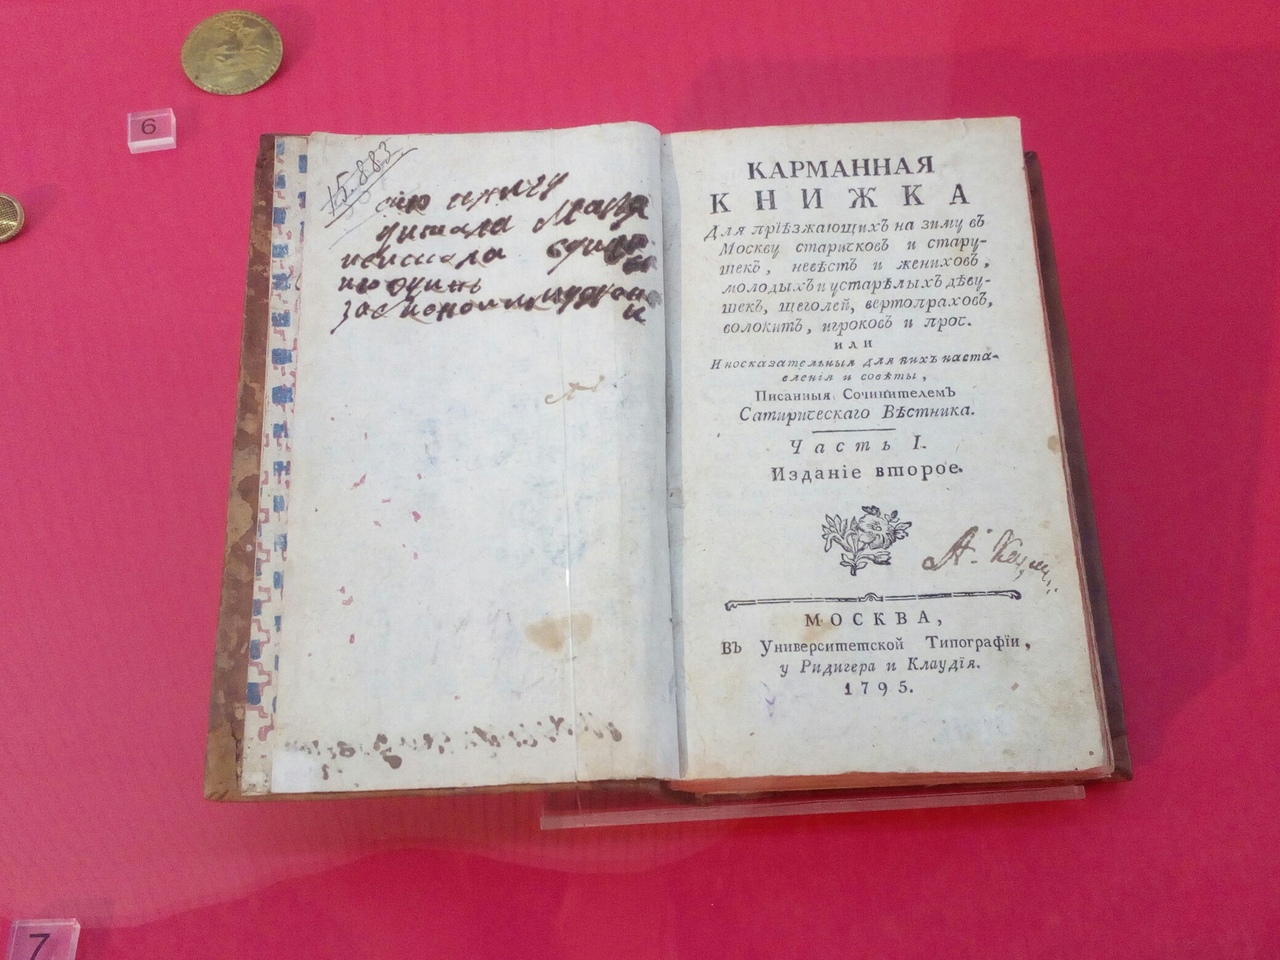 6
15.883
сию книгу
читала
КАРМАННАЯ
КНИЖКА
Для пріѣзжающихъ на зиму въ
Москву старичковъ и стару-
шекъ, невѣстъ и жениховъ,
молодыхъ и устарѣлыхъ дѣву-
шекъ, щеголей, вертопраховъ,
волокитъ, игроковъ и проч.
или
Иносказательныя для нихъ наста-
вленія и совѣты,
Писанныя Сочинителемъ
Сатирическаго Вѣстника.
Часть I.
Изданіе второе.
А.
МОСКВА,
Въ Университетской Типографіи,
у Ридигера и Клаудія.
1795.
7